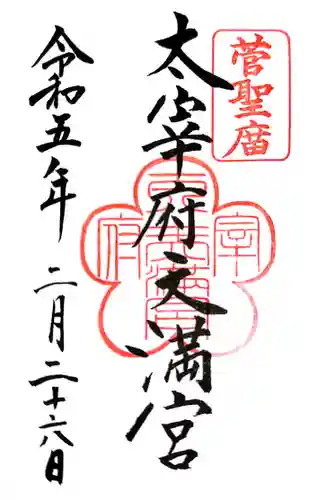 菅聖庿
太宰府天満宮
令和五年 二月二十六日